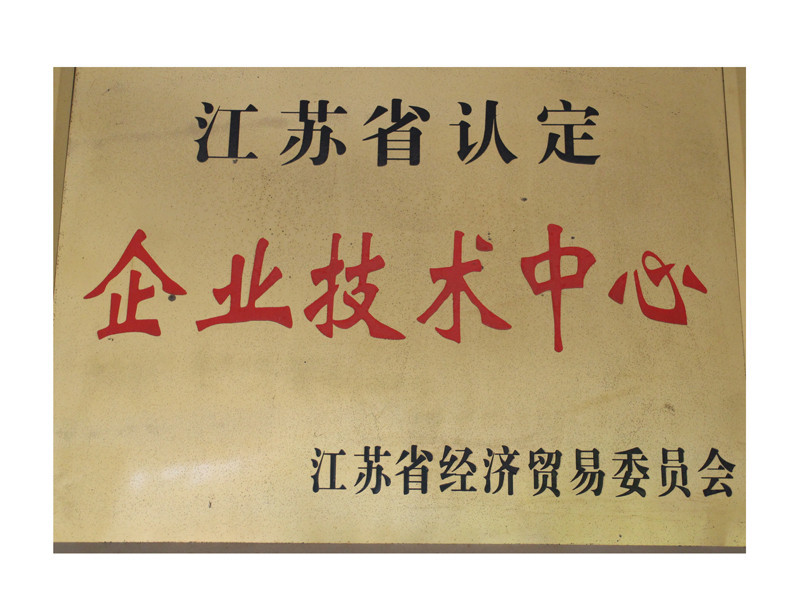 江苏省认定
企业技术中心
江苏省经济贸易委员会